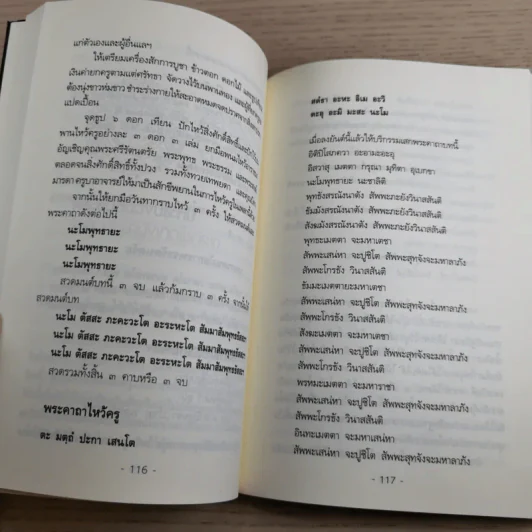 แก่ตัวเองและผู้อื่นแลฯ
ให้เตรียมเครื่องสักการบูชา ข้าวตอก ดอกไม้
เงินค่ายกครูตามแต่ศรัทธา จัดวางไว้บนพานทอง
ต้องนุ่งขาวห่มขาว ชำระร่างกายให้สะอาดหมดจด
แปดเปื้อน
จุดธูป ๖ ดอก เทียน ปักไหว้สิ่งศักดิ์สิทธิ์
พานไหว้ครูอย่างละ ๓ ดอก ๓ เล่ม ยกมือพนม
อัญเชิญคุณพระศรีรัตนตรัย พระพุทธ พระธรรม
ตลอดจนสิ่งศักดิ์สิทธิ์ทั้งปวง รวมทั้งทวยเทพยดา
มารดา ครูบาอาจารย์ให้มาเป็นสักขีพยานในการไหว้ครู
จากนั้นให้ยกมือวันทากราบไหว้ ๓ ครั้ง
พระคาถาดังต่อไปนี้
นะโมพุทธายะ
นะโมพุทธายะ
นะโมพุทธายะ
สวดมนต์บทนี้ ๓ จบ แล้วก้มกราบ ๓ ครั้ง
สวดมนต์บท
นะโม ตัสสะ ภะคะวะโต อะระหะโต สัมมาสัมพุทธัสสะ
นะโม ตัสสะ ภะคะวะโต อะระหะโต สัมมาสัมพุทธัสสะ
นะโม ตัสสะ ภะคะวะโต อะระหะโต สัมมาสัมพุทธัสสะ
สวดรวมทั้งสิ้น ๓ คาบหรือ ๓ จบ
พระคาถาไหว้ครู
ตะ มตฺถํ ปะกา เสนโต
- 116 -
สตฺธา อะหะ ลิเม อะวิ
คะอุ อะมิ มะสะ นะโม
เมื่อลงยันต์นี้แล้วให้บริกรรมเสกพระคาถาบทนี้
อิติปิโสภควา อะอามะอะอุ
อิสวาสุ เมตตา กรุณา มุทิตา อุเบกขา
นะโมพุทธายะ นะชาลีติ
พุทธังสรณังนาตัง สัพพะภะยังวินาสสันติ
ธัมมังสรณังนาตัง สัพพะภะยังวินาสสันติ
สังฆมังสรณังนาตัง สัพพะภะยังวินาสสันติ
พุทธะเมตตา จะมหาเตชา
สัพพะเสน่หา จะปูชิโต สัพพะสุทจังจะมหาลาภัง
สัพพะโกรธัง วินาสสันติ
ธัมมะเมตตายะมหาเตชา
สัพพะเสน่หา จะปูชิโต สัพพะสุทจังจะมหาลาภัง
สัพพะโกรธัง วินาสสันติ
สังฆะเมตตา จะมหาเตชา
สัพพะเสน่หา จะปูชิโต สัพพะสุทจังจะมหาลาภัง
สัพพะโกรธัง วินาสสันติ
พรหมะเมตตา จะมหาราชา
สัพพะเสน่หา จะปูชิโต สัพพะสุทจังจะมหาลาภัง
สัพพะโกรธัง วินาสสันติ
อินทะเมตตา จะมหาเสน่หา
สัพพะเสน่หา จะปูชิโต สัพพะสุทจังจะมหาลาภัง
- 117 -